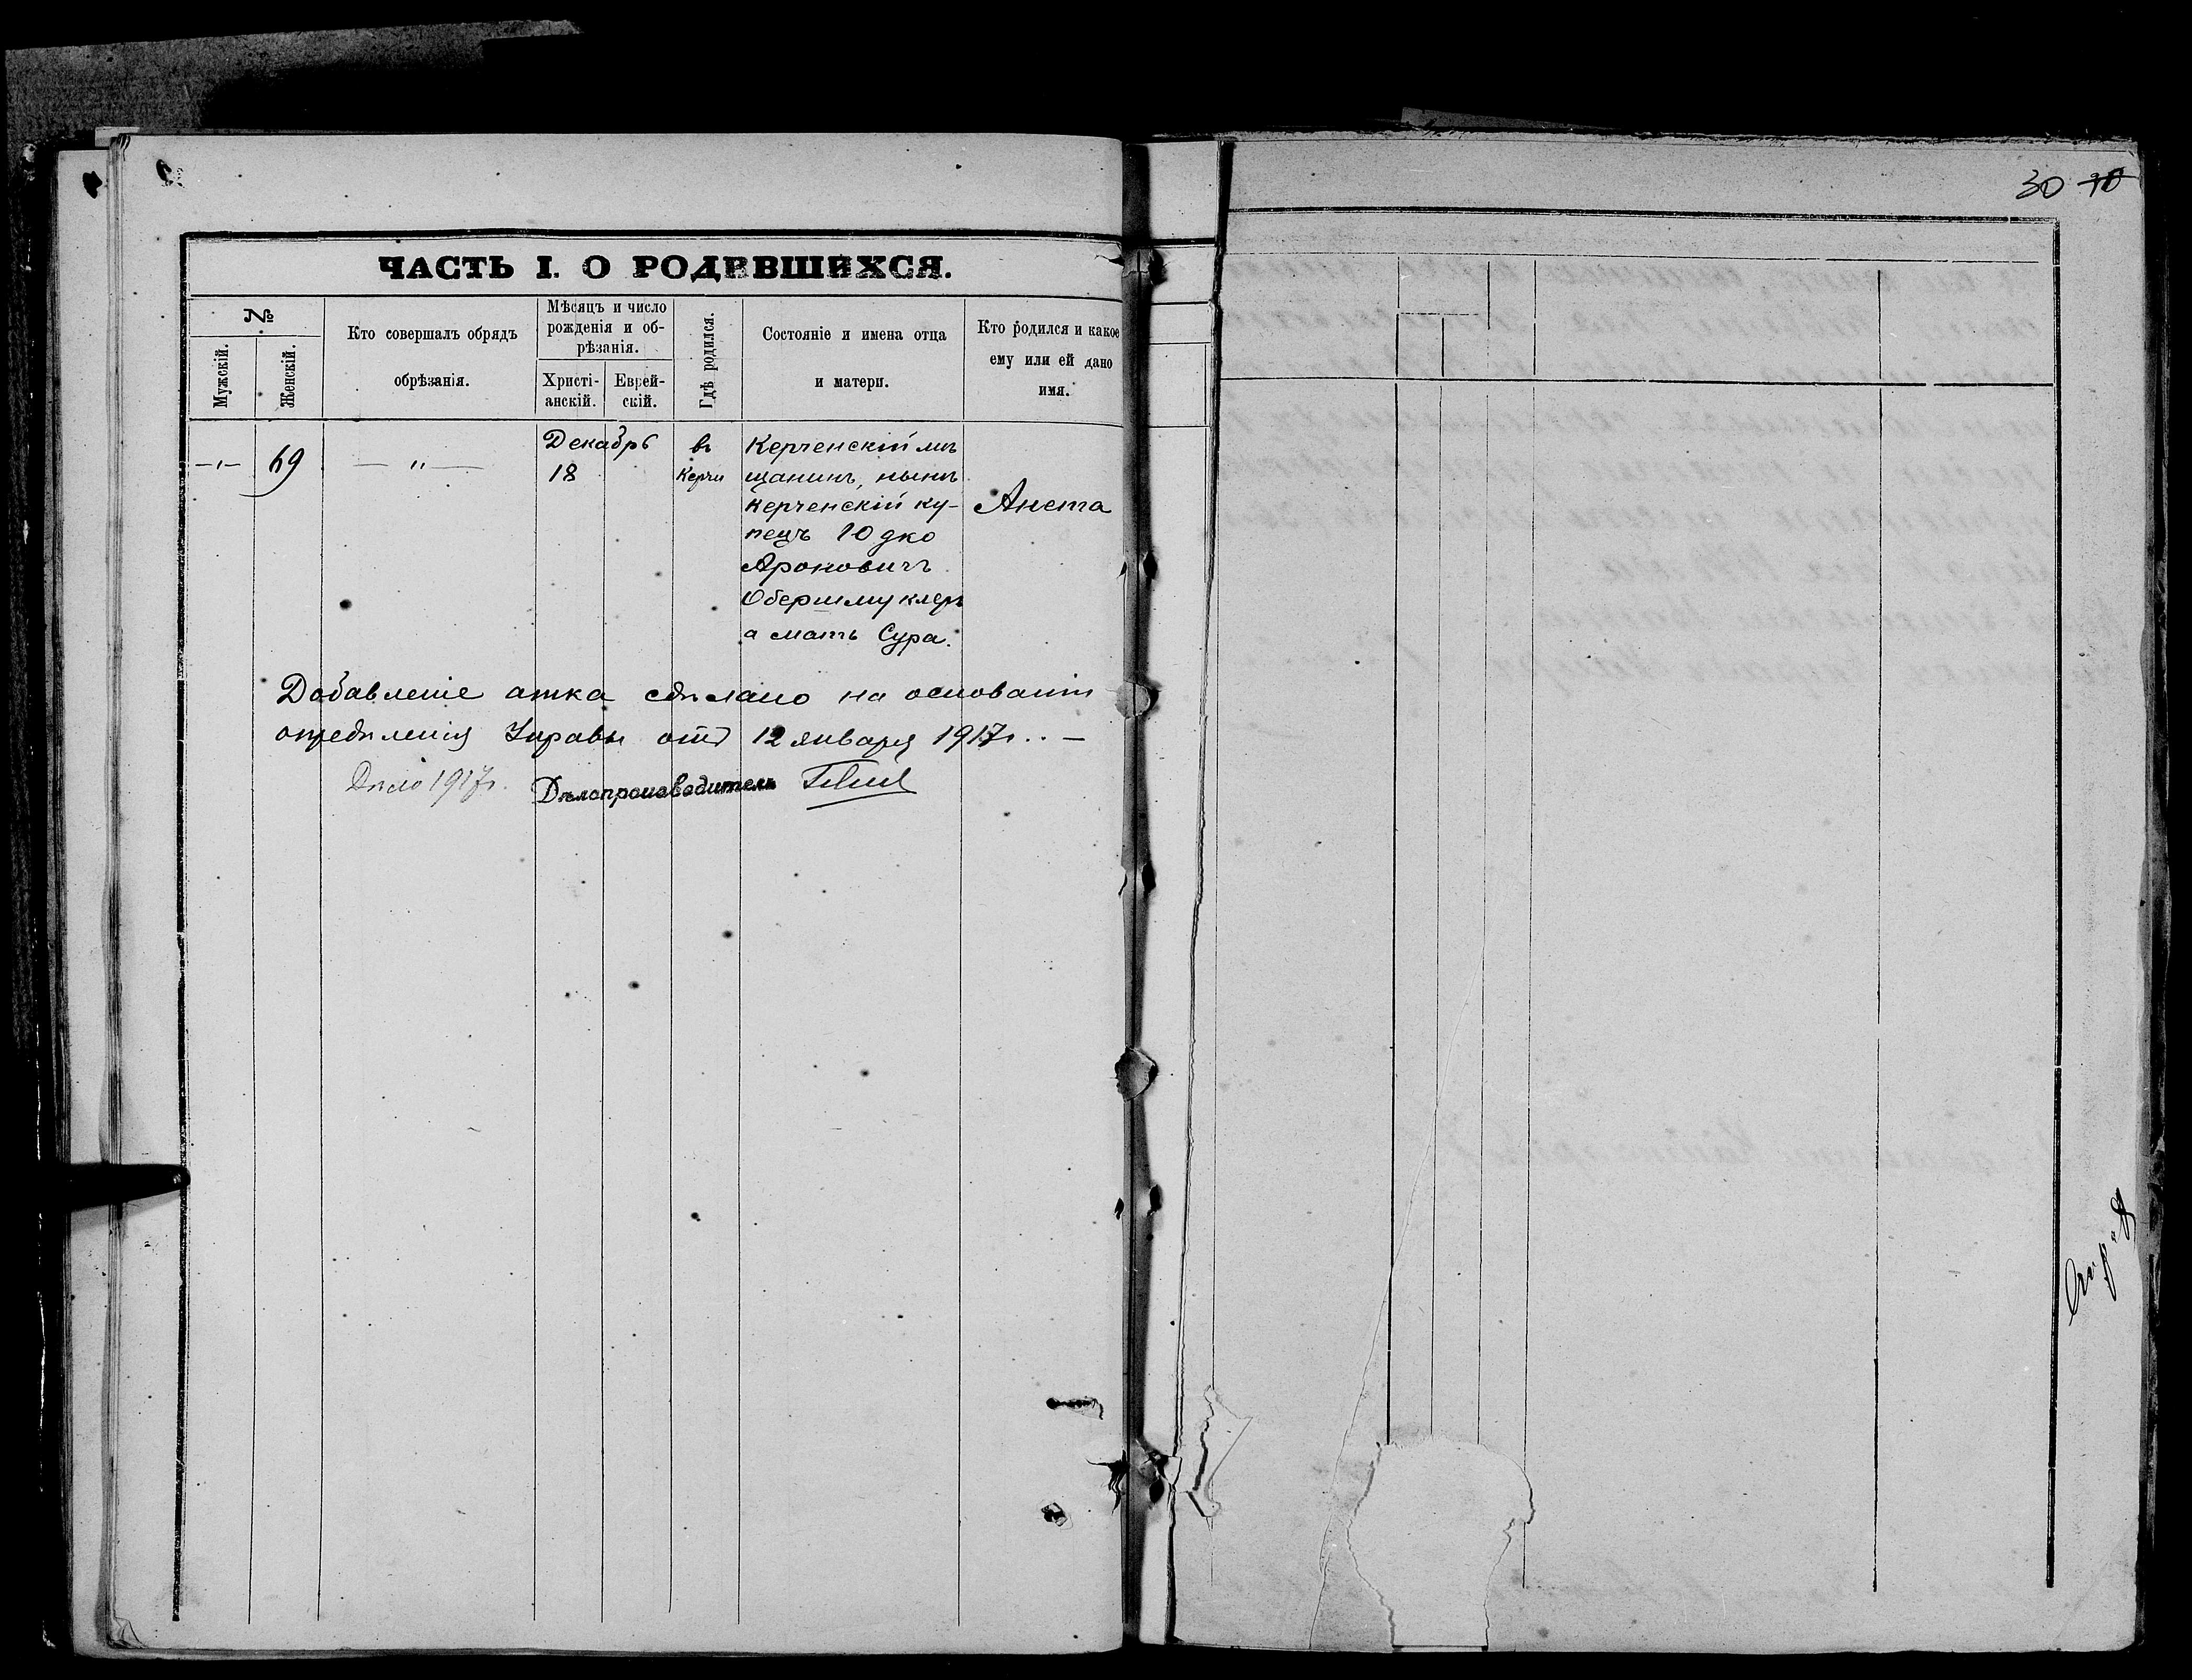 30 40
ЧАСТЬ I. О РОДИВШИХСЯ.
№
Мужскій.
Женскій.
Кто совершалъ обрядъ
обрѣзанія.
Мѣсяцъ и число
рожденія и об-
рѣзанія.
Христі-
анскій.
Еврей-
скій.
Гдѣ родился.
Состояніе и имена отца
и матери.
Кто родился и какое
ему или ей дано
имя.
— „ —
69
— „ —
Декабрь
18
въ
Керчи
Керченскій мѣ
щанинъ, нынѣ
Керченскій ку-
пецъ Юдко
Ароновичъ
Обершмуклеръ
а мать Сура.
Анета
Добавленіе акта сдѣлано на основаніи
опредѣленія Управы отъ 12 января 1917г. . —
Дѣло 1917г.
Дѣлопроизводитель